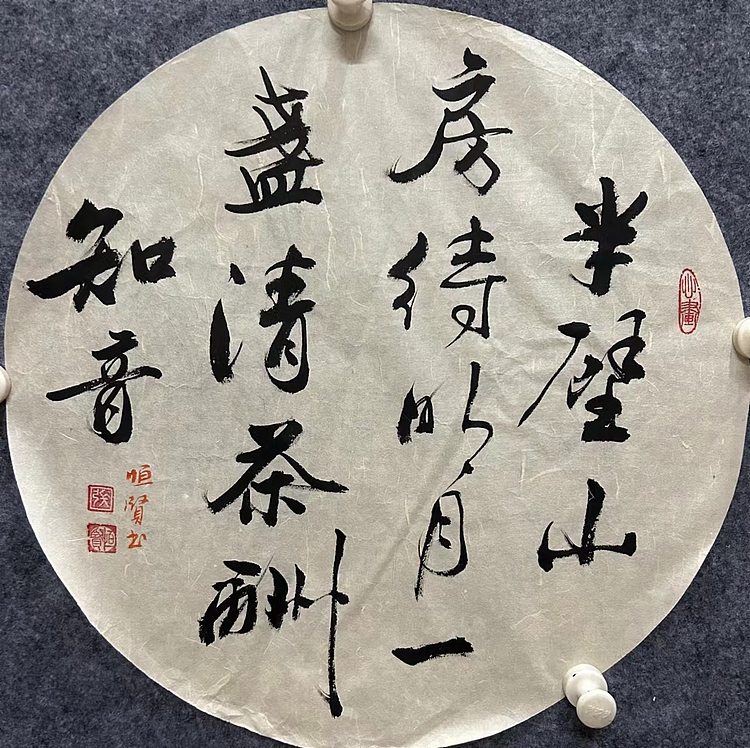 半壁山
房待明月一
盏清茶酬
知音
恒贤书